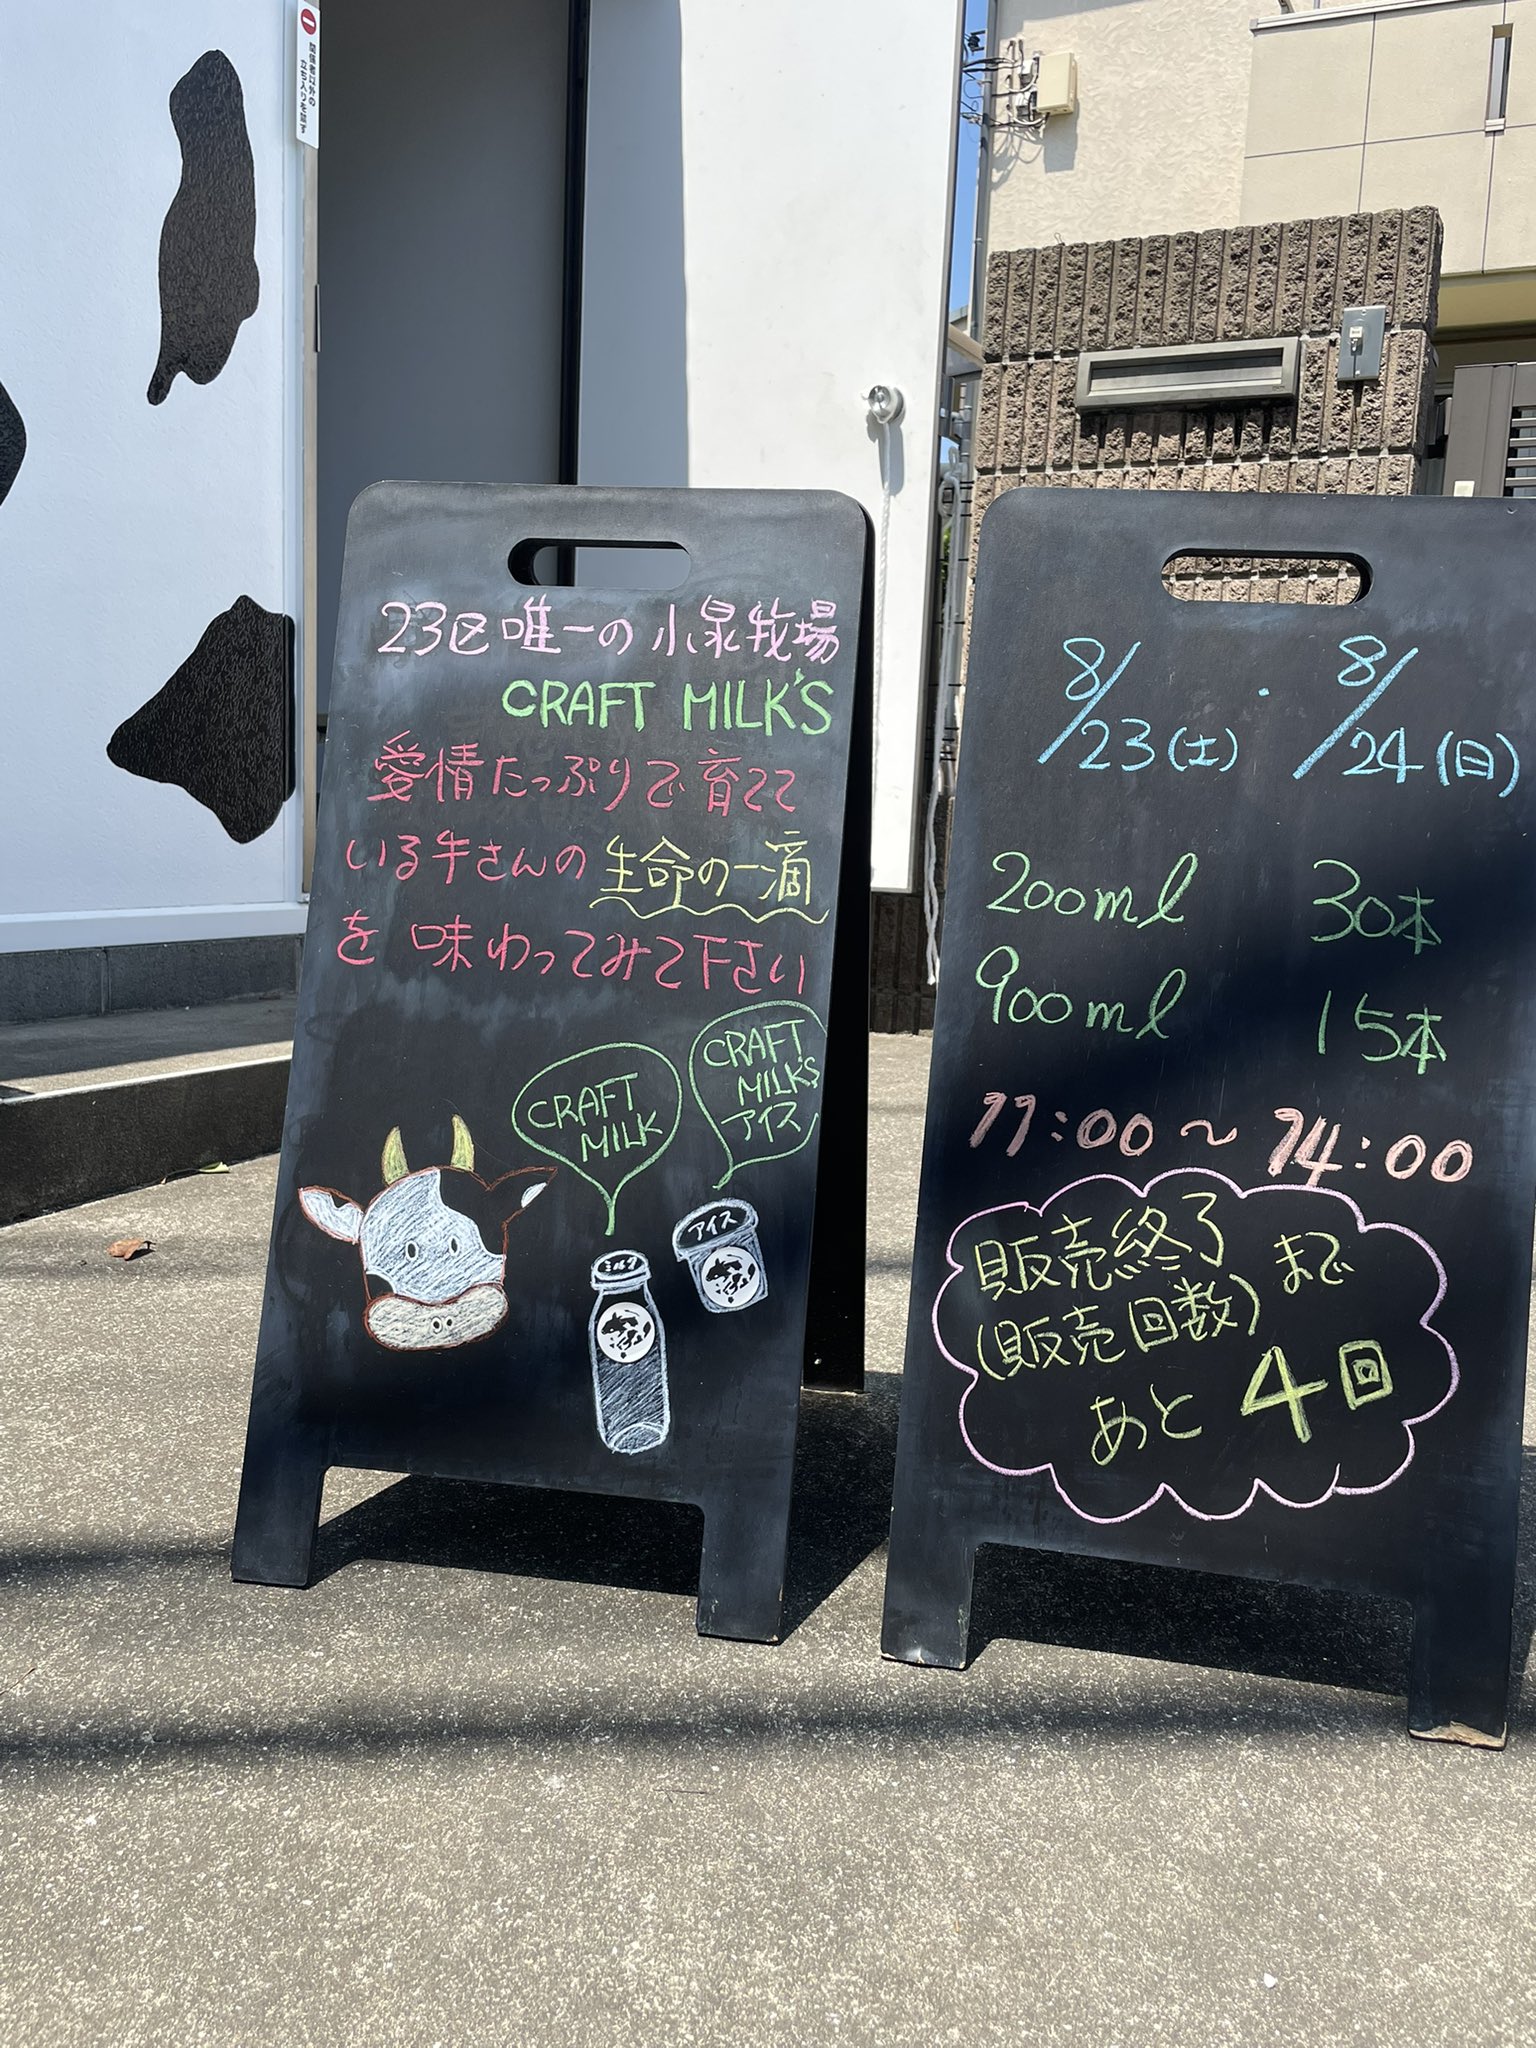 関係者以外の
立ち入りを禁ず
23区唯一の 小泉牧場
CRAFT MILK'S
愛情たっぷりで育てて
いる牛さんの 生命の一滴
を 味わってみて下さい
CRAFT
MILK
CRAFT
MILK'S
アイス
ミルク
アイス
8/23(土)・8/24(日)
200ml 30本
900ml 15本
11:00～14:00
販売終了まで
(販売回数)
あと4回